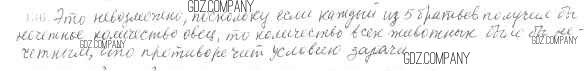 GDZ.COMPANY
1.16. Это невозможно, поскольку если каждый из 5 братьев получил бы
нечетное количество овец, то количество всех животных было бы не-
GDZ.COMPANY GDZ.COMPANY
четным, что противоречит условию задачи
GDZ.COMPANY